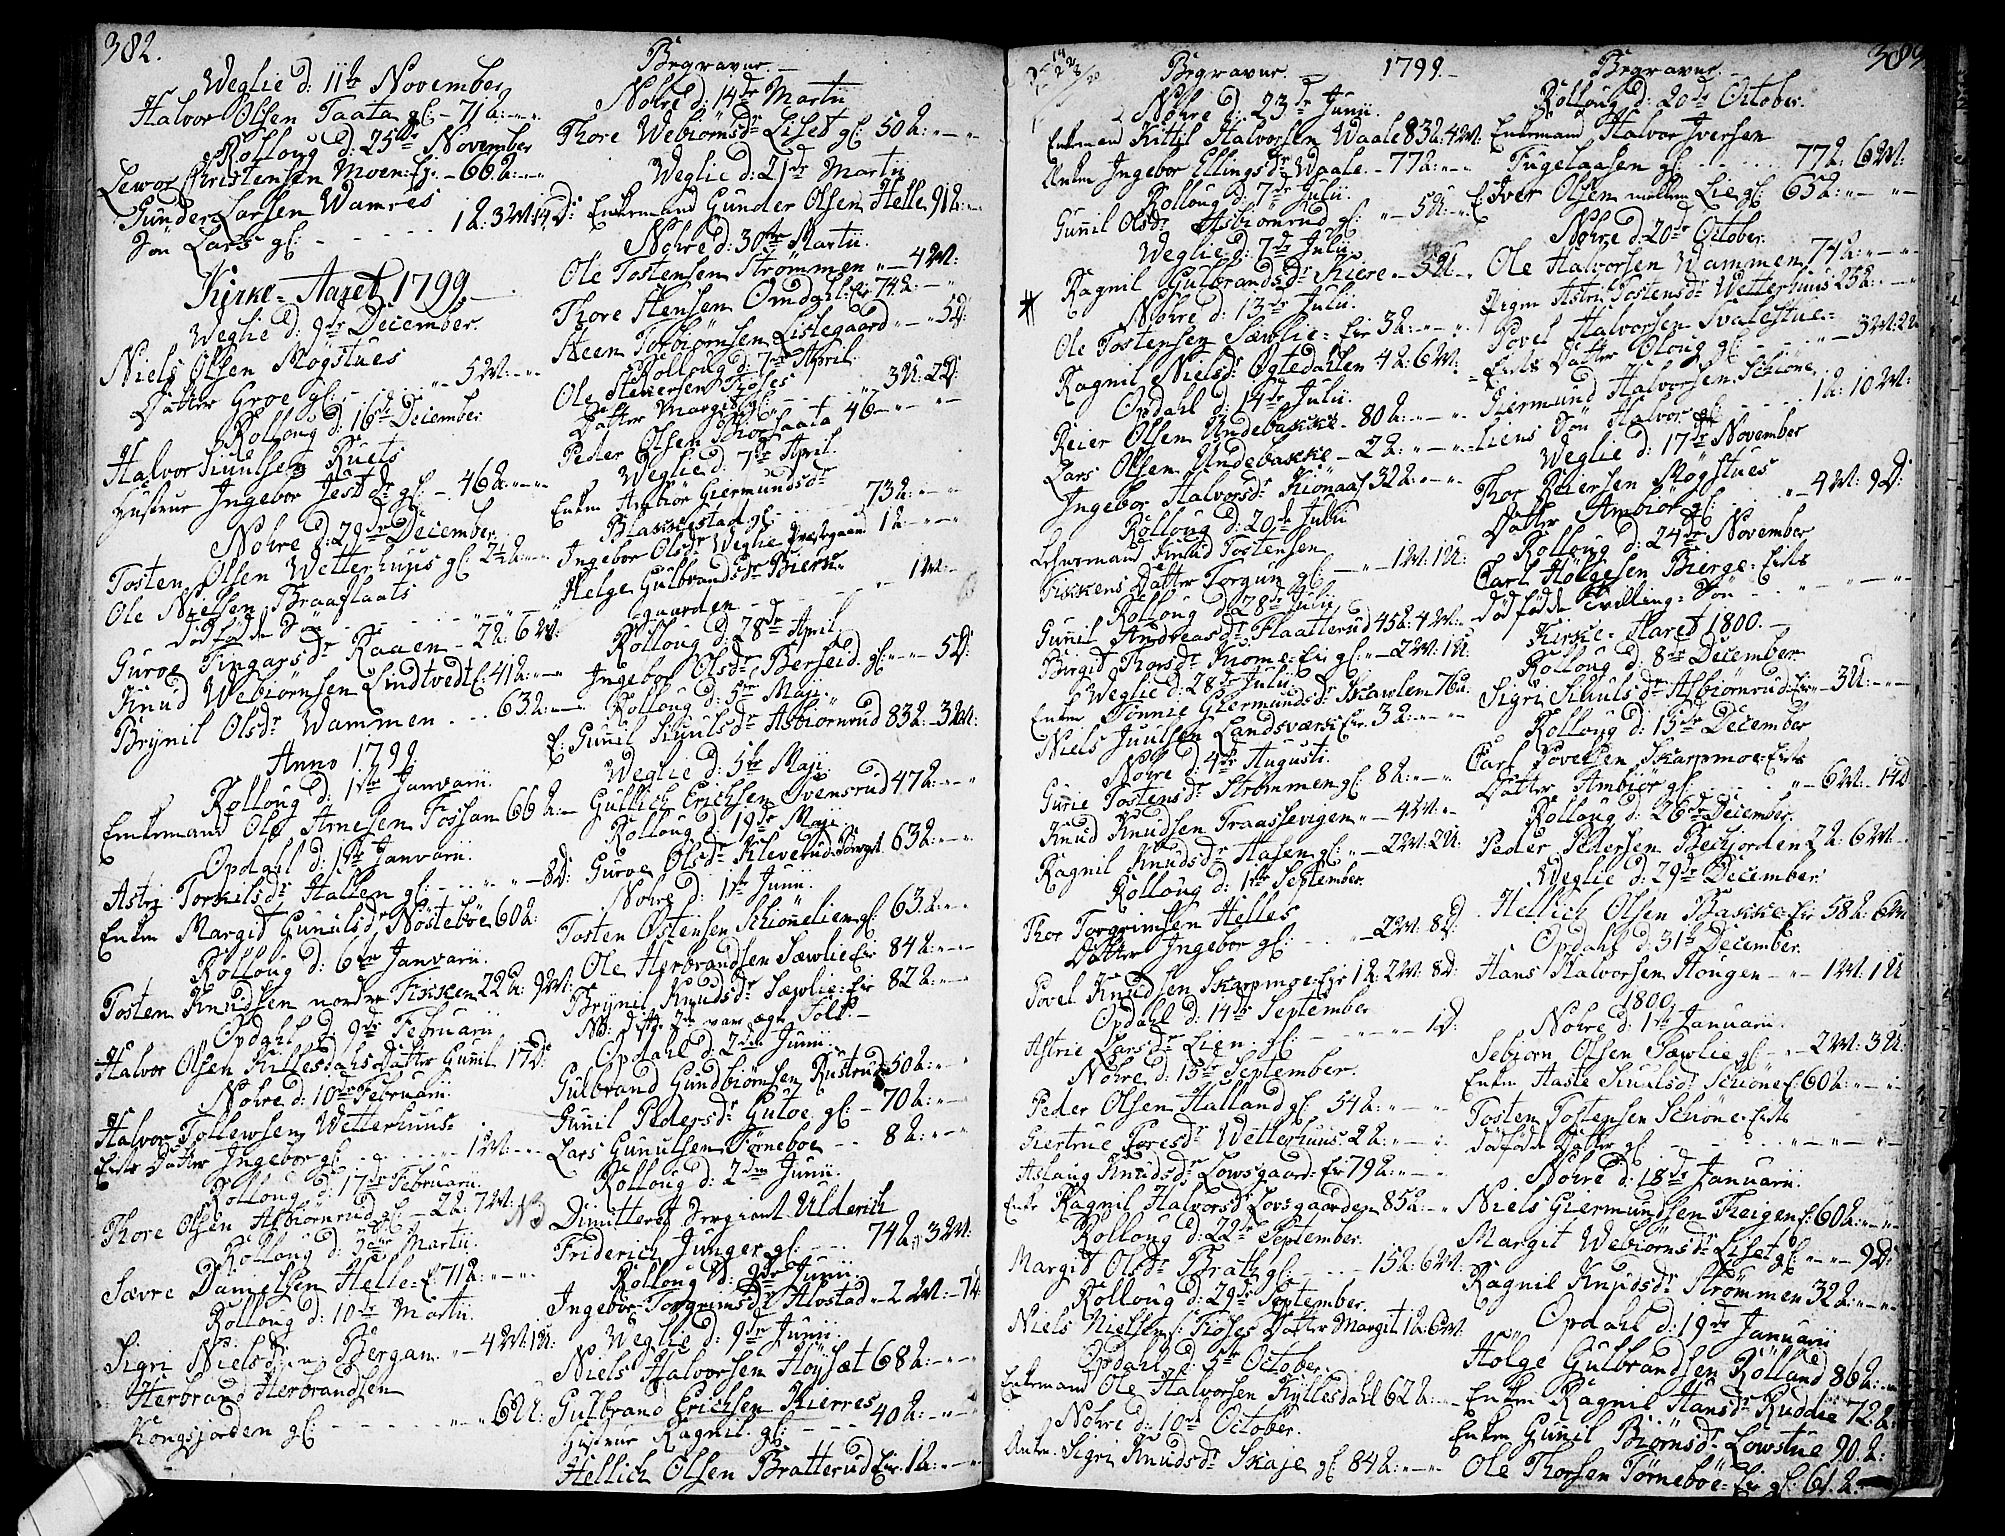 382.
Weglie d: 11te November
Halvor Olsen Taata gl: - 71 A: - -
Rolloug d: 25de November
Lewor Christensen Moen: Ejr. - 66 A: - -
Gunder Larsen Wamres
Søn Lars gl: - - - - 1 A: 3 W: 4 D:
Kirke-Aaret 1799
Weglie d: 9de December.
Niels Olsen Mogstues
Datter Groe gl: - - - - 5 W: - -
Rolloug d: 16de December
Halvor Knutsen Ruets
Hustrue Ingebor Jestdr gl: - 46 A: - -
Nohre d: 29de December
Tosten Olsen Wetterhuus gl: 72 A: - -
Ole Nielsen Braaflaats
dödfødde Sön - - - -
Guroe Tingarsdr Raaen - 72: 6 W:
Knud Webiörnsen Lindtvedt E: 41 A: - -
Brynil Olsdr Wammen - - 63 A: - -
Anno 1799.
Rolloug d: 1ste Januarii.
Enkemand Ole Arnesen Fossan 66 A: -
Opdahl d: 1ste Januarii.
Astri Torkilsdr Hallen gl: - - - - 8 D:
Enken Margit Gunulsdr Nöstebøe 60 A:
Rolloug d: 6te Januarii.
Tosten Knudsen nordre Fikken 22 A: 9 W:
Opdahl d: 9de Februarii
Halvor Olsen Killesdals Datter Gunil 17 D:
Nohre d: 10de Februarii.
Halvor Tollewsen Wetterhuus
Eiers Datter Ingebor gl: - - - - 1 W: - -
Rolloug d: 17de Februarii.
Thore Olsen Asbiörnrud gl: - 2 A: 7 W:
Rolloug d: 3die Martii.
Sævre Danielsen Helle: E: 71 A: - -
Rolloug d: 10de Martii.
Sigri Nielsdr Bergan - 4 W: 1 U:
Herbrand Herbrandsen
Kongsjorden gl: - - - - 62 A:
Begravne -
Nohre d: 14de Martii
Thore Webiörnsdr Liset gl: 50 A: - -
Weglie d: 21de Martii
Enkemand Gunder Olsen Helle 91 A: -
Nohre d: 30te Martii.
Ole Tostensen Strömmen - 4 W:
Thore Stensen Omdahl: Er 74 A: -
Steen Torbiörnsen Lislegaard - - 5 D:
Rolloug d: 7de April.
Ole Steversen Fröses
Datter Margit gl: - - 3 U: 2 D:
Peder Olsen Thorsaata 46 - - -
Weglie d: 7de April.
Enken Ambiör Giermundsdr
Blakkestad gl: - - - 73 A: - -
Ingebor Olsdr Weglie Præstgaard 1 A: - -
Helge Gulbrandsdr Biern
gaarden - - - - 1 W: -
Rolloug d: 28de April
Ingebor Olsdr Berseid gl: - - 5 D:
Rolloug d: 5te Maji
E: Gunil Knulsdr Asbiörnrud 83 A: 3 W:
Weglie d: 5te Maji.
Gullich Erichsen Ovensrud 47 A: - -
Rolloug d: 19de Maji.
Guroe Olsdr Kleverud: Bergt 63 A: - -
Nohre d: 1ste Junii.
Tosten Ostensen Schiönnelien gl: 63 A: - -
Ole Herbrandsen Sæwlie: Eir 84 A: - -
Brynil Knudsdr Sæwlie: Eir 82 A: - -
NB: disse 2de var ægte Folk: -
Opdahl d: 2den Junii.
Gulbrand Gundbiörnsen Rustrud 50 A: - -
Gunil Pedersdr Gutoe gl: - 70 A: - -
Lars Gunulsen Törneboe - - 8 A: - -
Rolloug d: 2den Junii.
NB Dimitteret Sergiant Ulderich
Friderich Junger gl: - - 74 A: 3 W:
Rolloug d: 9de Junii.
Ingebor Torgrimsdr Alvstad - 2 W: - 7 A:
Weglie d: 9de Junii.
Niels Halvorsen Höysæt 68 A: - -
Gulbrand Erichsen Kierres
Hustrue Ragnil gl: - - - 40 A: - -
Hellich Olsen Bratterud Eir: 1 A: - -
Begravne. - 1799. -
Nohre d: 23de Junii.
Enkemand Kittil Halvorsen Waale 83 A: 4 W:
Enken Ingebor Ellingsdr Waale - 77 A: - -
Rolloug d: 7de Julii.
Gunil Olsdr Asbiörnrud gl: - 5 U: -
Weglie d: 7de Julii.
Ragnil Gulbrandsdr Kiere - 3 U: -
Nohre d: 13de Julii.
Ole Tostensen Sæwlie: Eir 3 A: - -
Ragnil Nielsdr Ögtedahlen 4 A: 6 W:
Opdahl d: 14de Julii.
Reier Olsen Undebakke - 80 A: - -
Lars Olsen Undebakke - 2 A: - -
Ingebor Halvorsdr Kiönaas 32 A: - -
Rolloug d: 20de Julii
Lehnsmand Knud Tostensen
Fikkens Datter Torgun gl: - - 1 W: 1 U:
Rolloug d: 28de Julii
Gunil Andreasdr Flaatterud 45 A: 4 W:
Birgit Thorsdr Krome: Eir gl: - 2 W: 1 U:
Weglie d: 28de Julii.
Enken Tönnie Giermundsdr Skawlem 76 A:
Niels Juulsen Landsværk: Eir 3 A: - -
Nohre d: 4de Augusti.
Gurie Tostensdr Strömmen gl: 8 A: - -
Knud Knudsen Traassevigen - 4 W: -
Ragnil Knudsdr Hasen gl: - 2 W: 2 U:
Rolloug d: 1ste September.
Thor Torgrimsen Helles
Datter Ingebor gl: - - 2 W: 8 D:
Povel Knudsen Skarpmoe: Ejr 1 A: 2 W: 8 D:
Opdahl d: 14de September
Astrie Larsdr Lien gl: - - - 1 D:
Nohre d: 15de September.
Peder Olsen Halland gl: 54 A: - -
Giertrue Toresdr Wetterhuus 2 A: - -
Aslaug Knudsdr Lowsgaard: Er: 79 A: - -
Enke Ragnil Halvorsdr Lovsgaarden 85 A: -
Rolloug d: 22de September.
Margit Olsdr Brath gl: - - - 15 A: 6 W:
Rolloug d: 29de September.
Niels Nielsen S: Fröses Datter Margit 1 A: 6 W:
Opdahl d: 5te October.
Enkemand Ole Halvorsen Kyllesdahl 62 A: -
Nohre d: 10de October.
Enken Sigri Knudsdr Skaje gl: 84 A: - -
Begravne - 383
Rolloug d: 20de October.
Enkemand Halvor Iversen
Fugelaasen gl: - - - 77 A: 6 W:
E: Iver Olsen mellem Lie gl: 65 A: - -
Nohre d: 20de October.
Ole Halvorsen Wammen 74 A: - -
Pigen Astri Tostensdr Wetterhuus 25 A: -
Povel Halvorsen Svalestue
Eiers Datter Oloug gl: - - 3 W: 2 U:
Giermund Halvorsen Schiöne
liens Sön Halvor gl: - - 1 A: 10 W:
Weglie d: 17de November
Thor Reiersen Mögstues
Datter Ambiör gl: - - 4 W: 9 D:
Rolloug d: 24de November
Carl Holgesen Bierge: Eiers
dödfødde Tvilling: Sön - - - -
Kirke-Aaret 1800. -
Rolloug d: 8de December.
Sigri Knulsdr Asbiörnrud: Eir - 3 U: -
Rolloug d: 15de December
Carl Povelsen Skarpmoe: Eiers
Datter Ambiör gl: - - 6 W: 4 D:
Rolloug d: 26de December.
Peder Pedersen Bechjorden 2 A: 6 W:
Weglie d: 29de December.
Hellich Olsen Bakke: Eir 58 A: 6 W:
Opdahl d: 31te December.
Hans Halvorsen Hougen - - 1 W: 1 U:
1800.
Nohre d: 1ste Januarii.
Sebiörn Olsen Sæwlie gl: - - 2 W: 3 U:
Enken Haste Knulsdr Schiöne E: 60 A: - -
Tosten Tostensen Schöne: Eiers
dödfødde Datter gl: - - - -
Nohre d: 18de Januarii.
Niels Giermundsen Theigen E: 60 A: - -
Margit Webiörnsdr Liset gl: - - 9 D:
Ragnil Knudsdr Strömmen 32 A: - -
Opdahl d: 19de Januarii
Holge Gulbrandsen Rölland 86 A: -
Enken Ragnil Hansdr Ruddie 72 A:
Enken Gunil Biörnsdr Lowstue 90 A:
Ole Thorsen Törneboe: Eir gl: 61 A: -